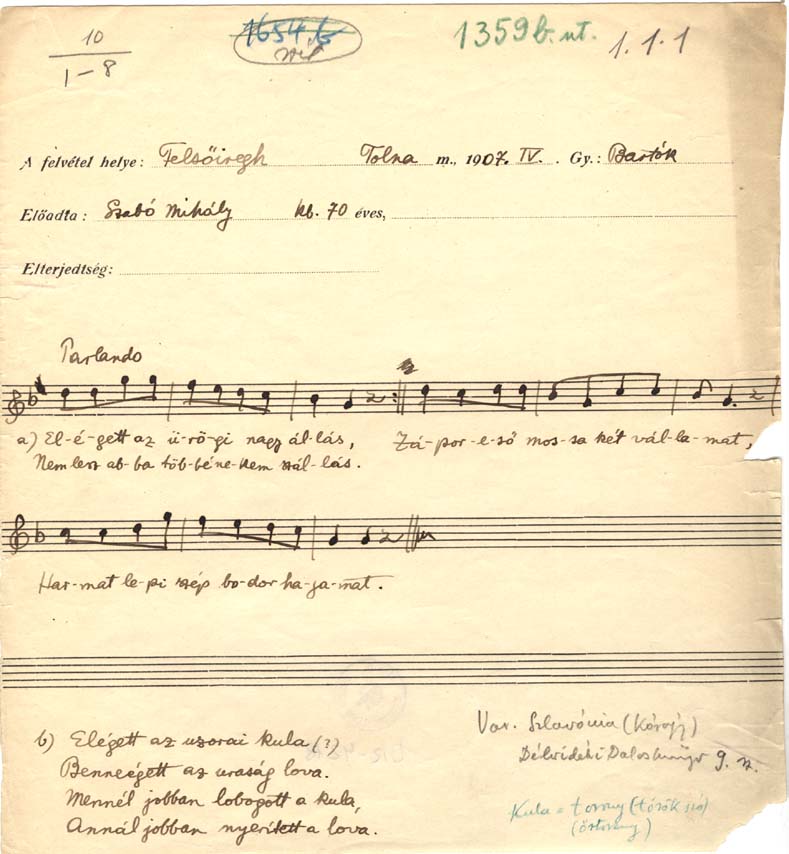 10
1654.b
1359b.nt.
1.1.1
1–8
A felvétel helye: Felsőiregh Tolna m., 1907. IV. Gy.: Bartók
Előadta: Szabó Mihály kb. 70 éves,
Elterjedtség:
Parlando
a) El-é-gett az ü-rö-gi nagy ál-lás, Zá-por-e-ső mos-sa két vál-la-mat,
Nem lesz ab-ba töb-bé ne-kem szál-lás.
Har-mat le-pi szép bo-dor ha-ja-mat.
b) Elégett az uzorai kula (?)
Benneégett az uraság lova.
Mennél jobban lobogott a kula,
Annál jobban nyerített a lova.
Var. Szlavónia (Kórógy)
Délvidéki Daloskönyv 9. sz.
Kula = torony (török szó)
(őrtorony)